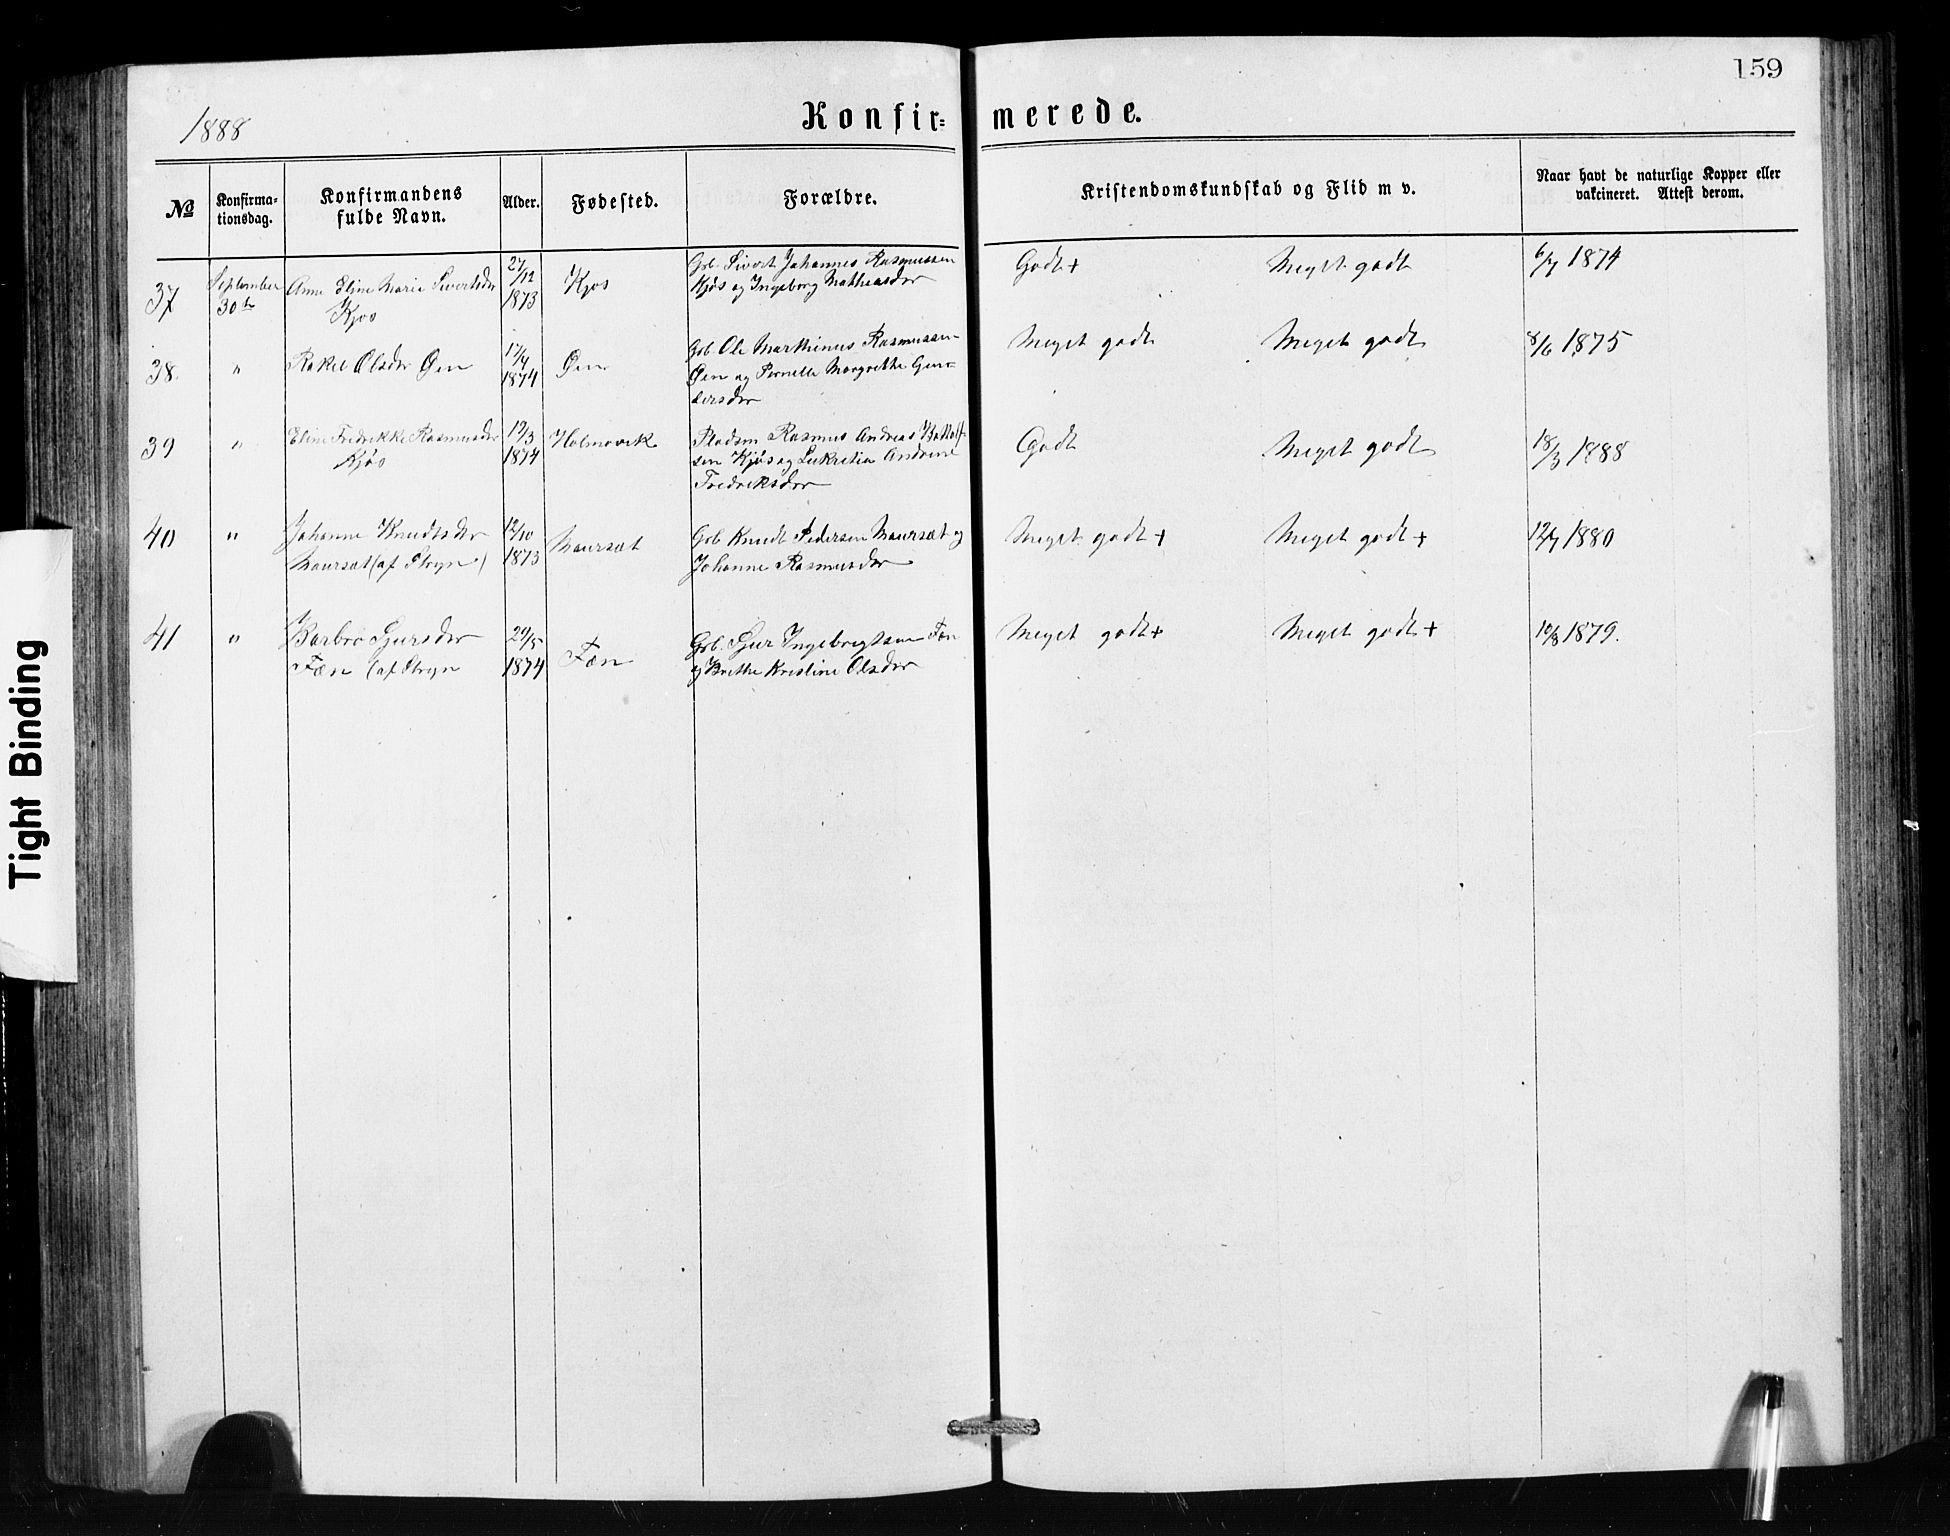 159
1888
Konfir=merede.
№
Konfirma=
tionsdag.
Konfirmandens
fulde Navn.
Alder.
Fødested.
Forældre.
Kristendomskundskab og Flid m v.
Naar havt de naturlige Kopper eller
vakcineret. Attest derom.
37
September
30te
Anne Eline Marie Sivertsdr
Kjøs
27/12
1873
Kjøs
Grb. Sivert Johannes Rasmussen
Kjøs og Ingeborg Mathiasdr
Godt+
Meget godt
6/7 1874
38.
"
Rakel Olsdr Øen
17/4
1874
Øen
Grb. Ole Marthinus Rasmussen
Øen og Pernille Margrethe Gun=
dersdr
Meget godt
Meget godt
8/6 1875
39
"
Eline Fredrikke Rasmusdr
Kjøs
19/3
1874
Holmøvik
Pladsm Rasmus Andreas
sen Kjøs og Lukretia Andrine
Fredriksdr
Godt
Meget godt
18/3 1888
40
"
Johanne Knudtsdr
Maursæt (af Stryn)
12/10
1873
Maursæt
Grb Knudt Pedersen Maursæt og
Johanne Rasmusdr
Meget godt+
Meget godt+
12/7 1880
41
"
Barbro Sjursdr
Fæn (af Stryn
29/5
1874
Fæn
Grb. Sjur Ingebrigtsen Fæn
og Brithe Kristine Olsdr
Meget godt+
Meget godt+
19/8 1879.
Tight Binding